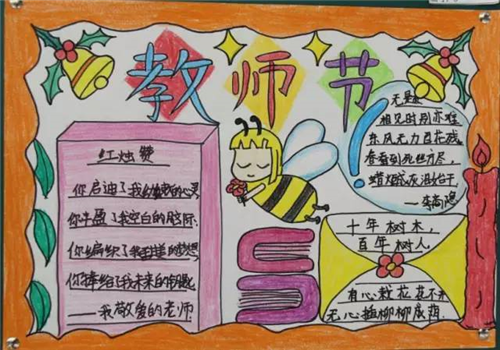 教师节
红烛赞
你启迪了我幼稚的心灵
你丰盈了我空白的脑际
你编织了我的梦想
你捧给了我未来的
——我敬爱的老师
无题
相见时别亦难
东风无力百花残
春蚕到死丝方尽，
蜡炬成灰泪始干
——李商隐
十年树木，
百年树人，
有心栽花花不开
无心插柳柳成荫